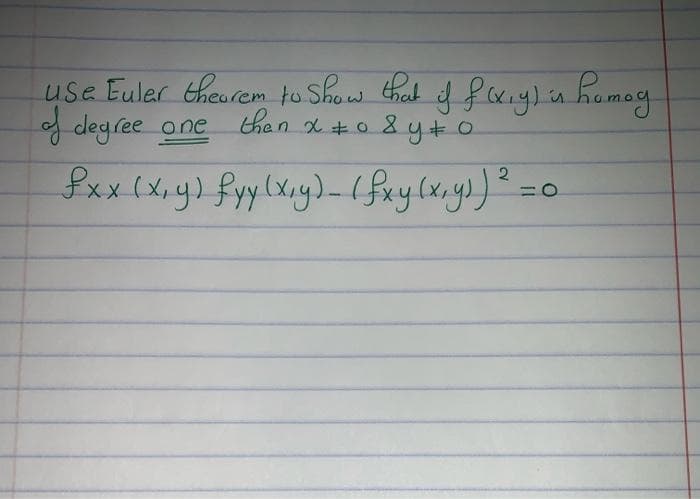 use Euler theorem to show that if f(x,y) is homog
of degree one then x ≠ 0 & y ≠ 0
fxx (x,y) fyy(x,y) - (fxy(x,y))² = 0